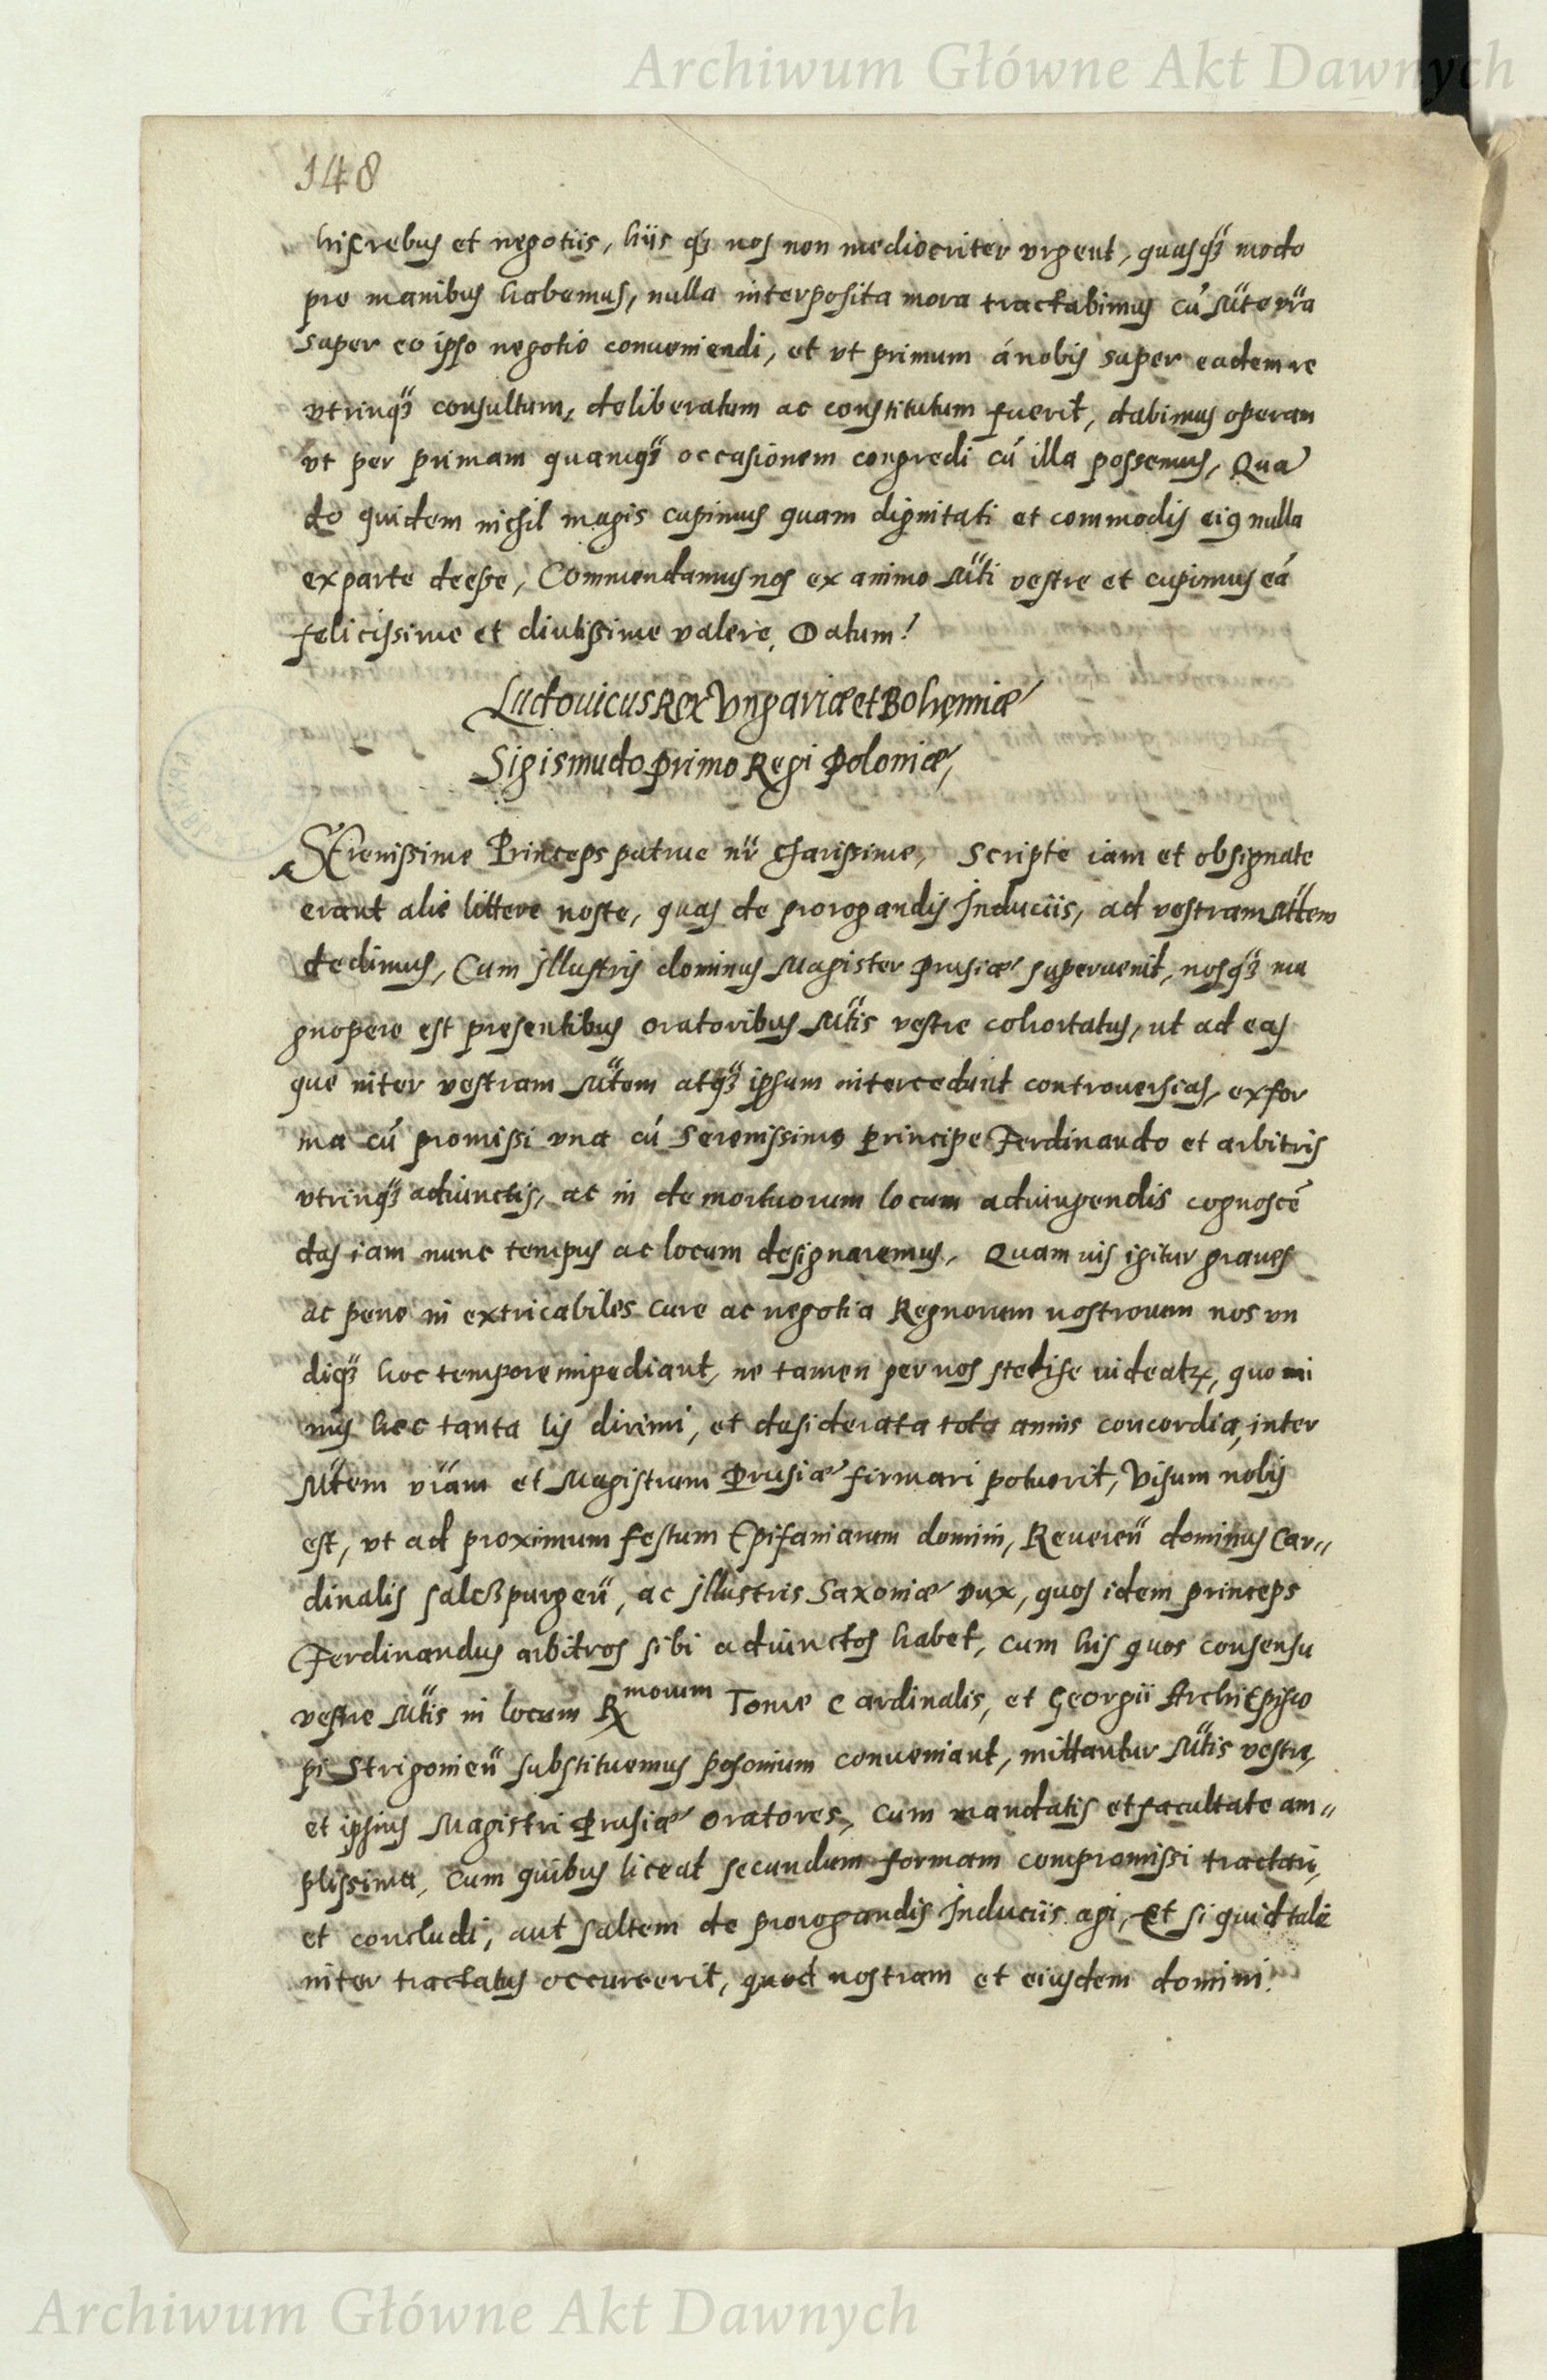 Archiwum Główne Akt Dawnych
148
his rebus et negotiis, hiis qʒ nos non mediocriter vrgent, quasqʒ modo
pre manibus habemus, nulla interposita mora tractabimus cū Mte vra
super eo ipso negotio conueniendi, et vt primum á nobis super eadem re
vtrinqʒ consultum, deliberatum ac constitutum fuerit, dabimus operam
vt per primam quamqʒ occasionem congredi cū illa possemus, Qua
de quidem nichil magis cupimus quam dignitati et commodis eiꝰ nulla
ex parte deesse, Commendamus nos ex animo Mti vestre et cupimus eā
felicissime et diutissime valere. Datum!
Ludouicus Rex Vngariæ et Bohemiæ
Sigismudo primo Regi Poloniæ,
Serenissime Princeps patrue nr charissime, Scripte iam et obsignate
erant alie littere noste, quas de prorogandis Induciis, ad vestram Mtem
dedimus, Cum Illustris dominus Magister Prusiæ superuenit, nosqʒ ma
gnopere est presentibus oratoribus Mtis vestre cohortatus, ut ad eas
que inter vestram Mtem atqʒ ipsum intercedunt controuersias, ex for
ma cū promissi vna cū Serenissimo Principe Ferdinando et arbitris
vtrinqʒ adiunctis, ac in demortuorum locum adiungendis cognoscē
das iam nunc tempus ac locum designaremus. Quam uis igitur graues
ac pene in extricabiles cure ac negotia Regnorum nostroum nos vn
diqʒ hoc tempore impediant, ne tamen per nos stetisse uideatꝝ, quo mi
nus hec tanta lis dirimi, et desiderata tota annis concordia, inter
Mtem vram et Magistrum Prusiæ firmari potuerit, Visum nobis
est, vt ad proximum festum Epifaniarum domini, Reueren dominus Car„
dinalis salczpurgen, ac Illustris Saxoniæ Dux, quos idem princeps
Ferdinandus arbitros sibi adiunctos habet, cum his quos consensu
vestre Mtis in locum Rmorum Tome Cardinalis, et Georgii ArchiEpisco
pi Strigonien substituemus posonium conueniant, mittantur Mtis vestre,
et ipsius Magistri Prusiæ oratores, cum mandatis et facultate am„
plissima, Cum quibus liceat secundum formam compromissi tractari,
et concludi, aut saltem de prorogandis Induciis agi, Et si quid tale
inter tractatus occurrerit, quod nostram et eiusdem domini
Archiwum Główne Akt Dawnych